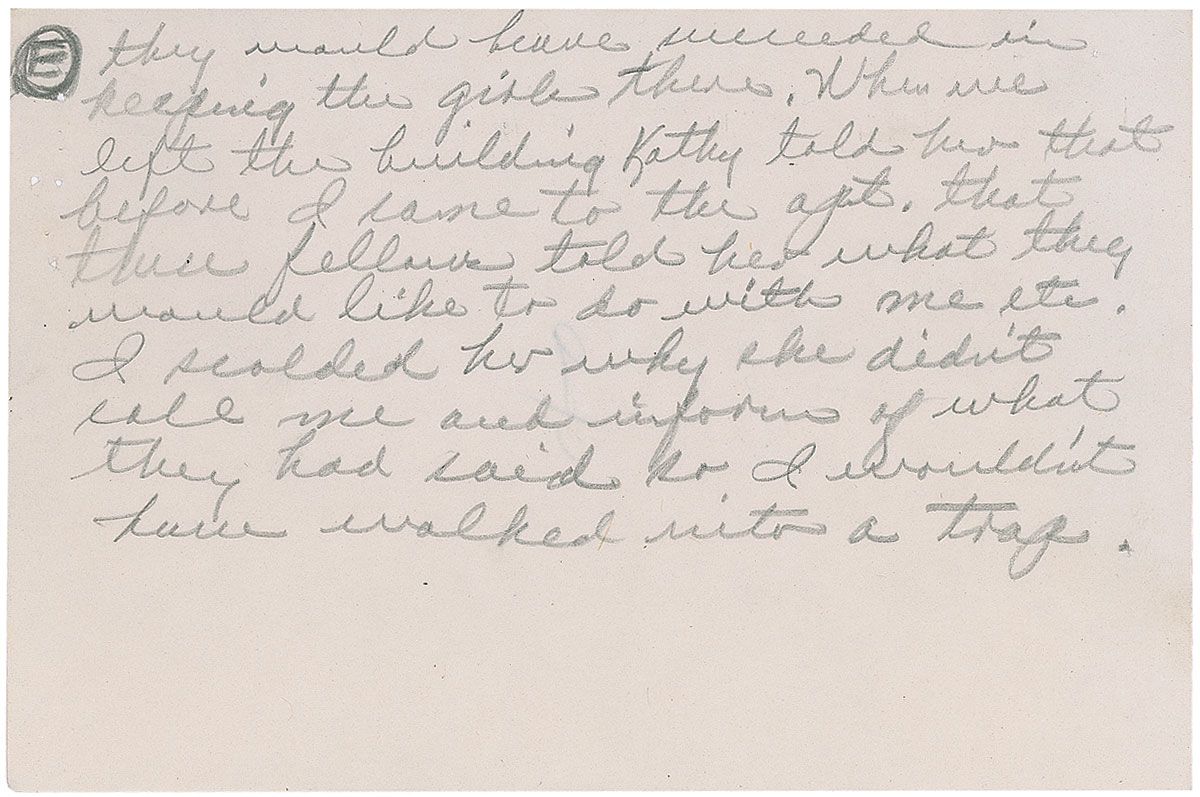 E
they would have succeeded in
keeping the girls there. When we
left the building Kathy told her that
before I came to the apt. that
these fellows told her what they
would like to do with me etc.
I scolded her why she didn't
call me and inform of what
they had said so I wouldn't
have walked into a trap.